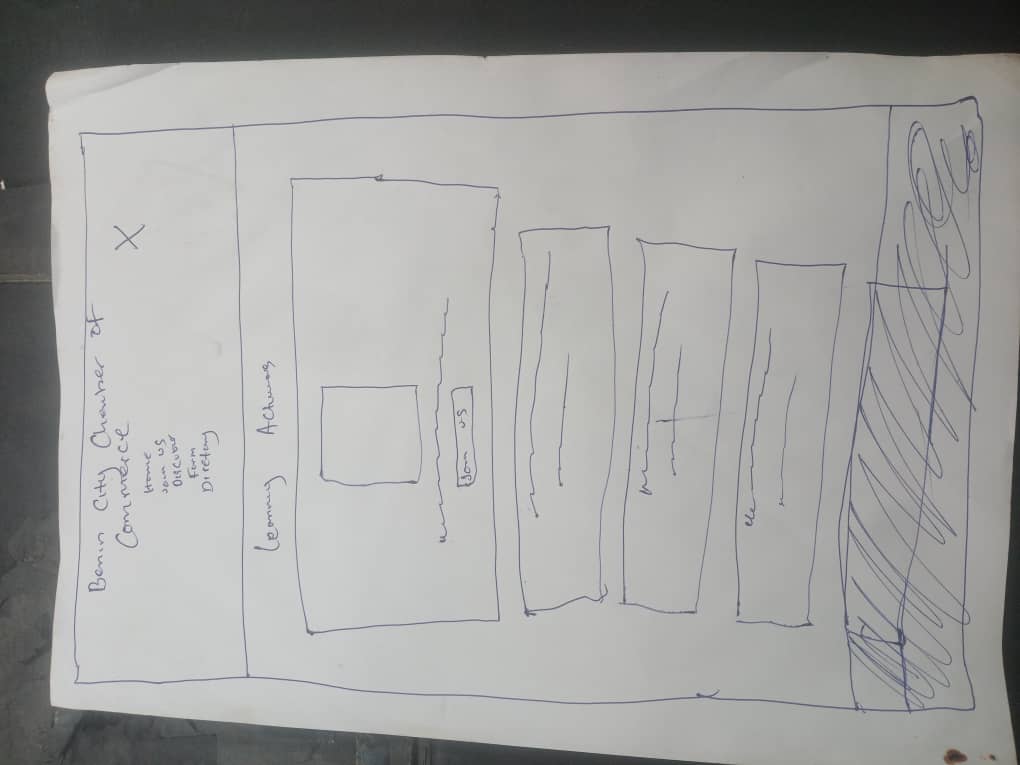 Benin City Chamber of
Commerce
X
Home
Join us
Discover
Form
Diretory
Learning
Join us